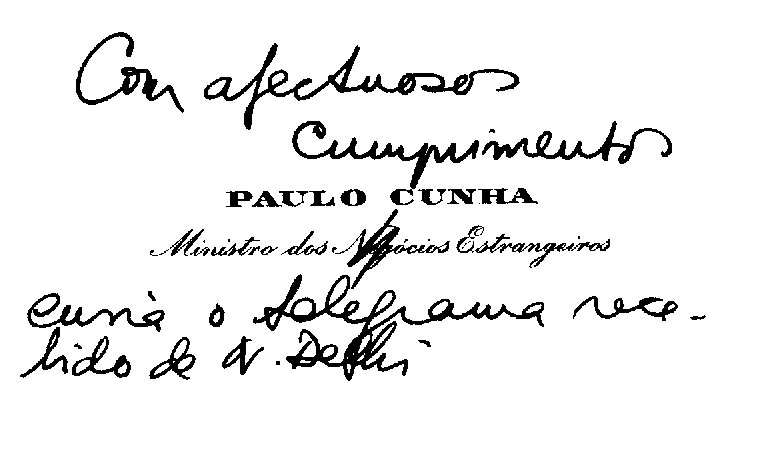 Com afectuosos
cumprimentos
PAULO CUNHA
Ministro dos Negócios Estrangeiros
envia o telegrama rece-
bido de N. Delhi